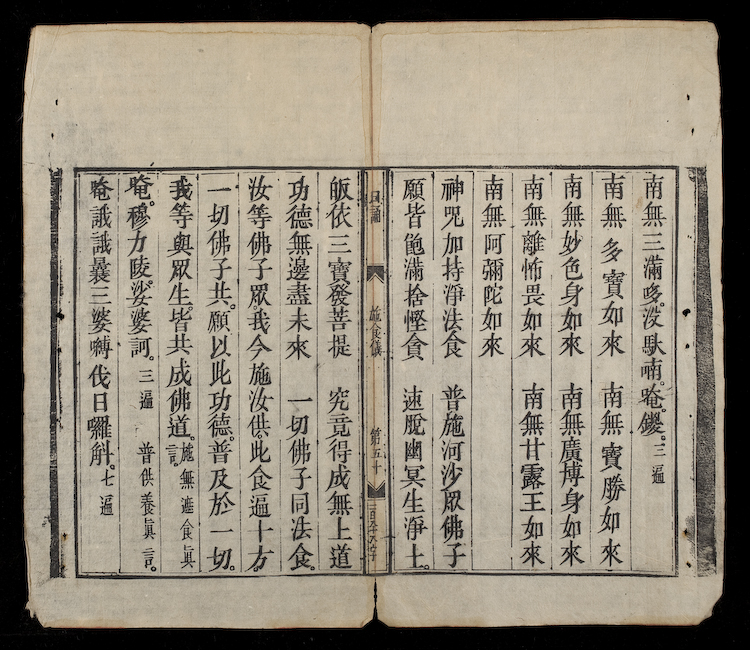 南無三滿哆。没馱喃。唵。鑁。三遍
南無多寶如來　南無寶勝如來
南無妙色身如來　南無廣博身如來
南無離怖畏如來　南無甘露王如來
南無阿彌陀如來
神咒加持淨法食　普施河沙眾佛子
願皆飽滿捨慳貪　速脫幽冥生淨土。
日誦　施食儀　第五十
皈依三寶發菩提　究竟得成無上道
功德無邊盡未來　一切佛子同法食。
汝等佛子眾我今施汝供。此食遍十方。
一切佛子共。願以此功德。普及於一切。
我等與眾生。皆共成佛道。施無遮食眞言。
唵。穆力陵。娑婆訶。三遍　普供養眞言。
唵誐誐曩三婆嚩伐日囉斛。七遍